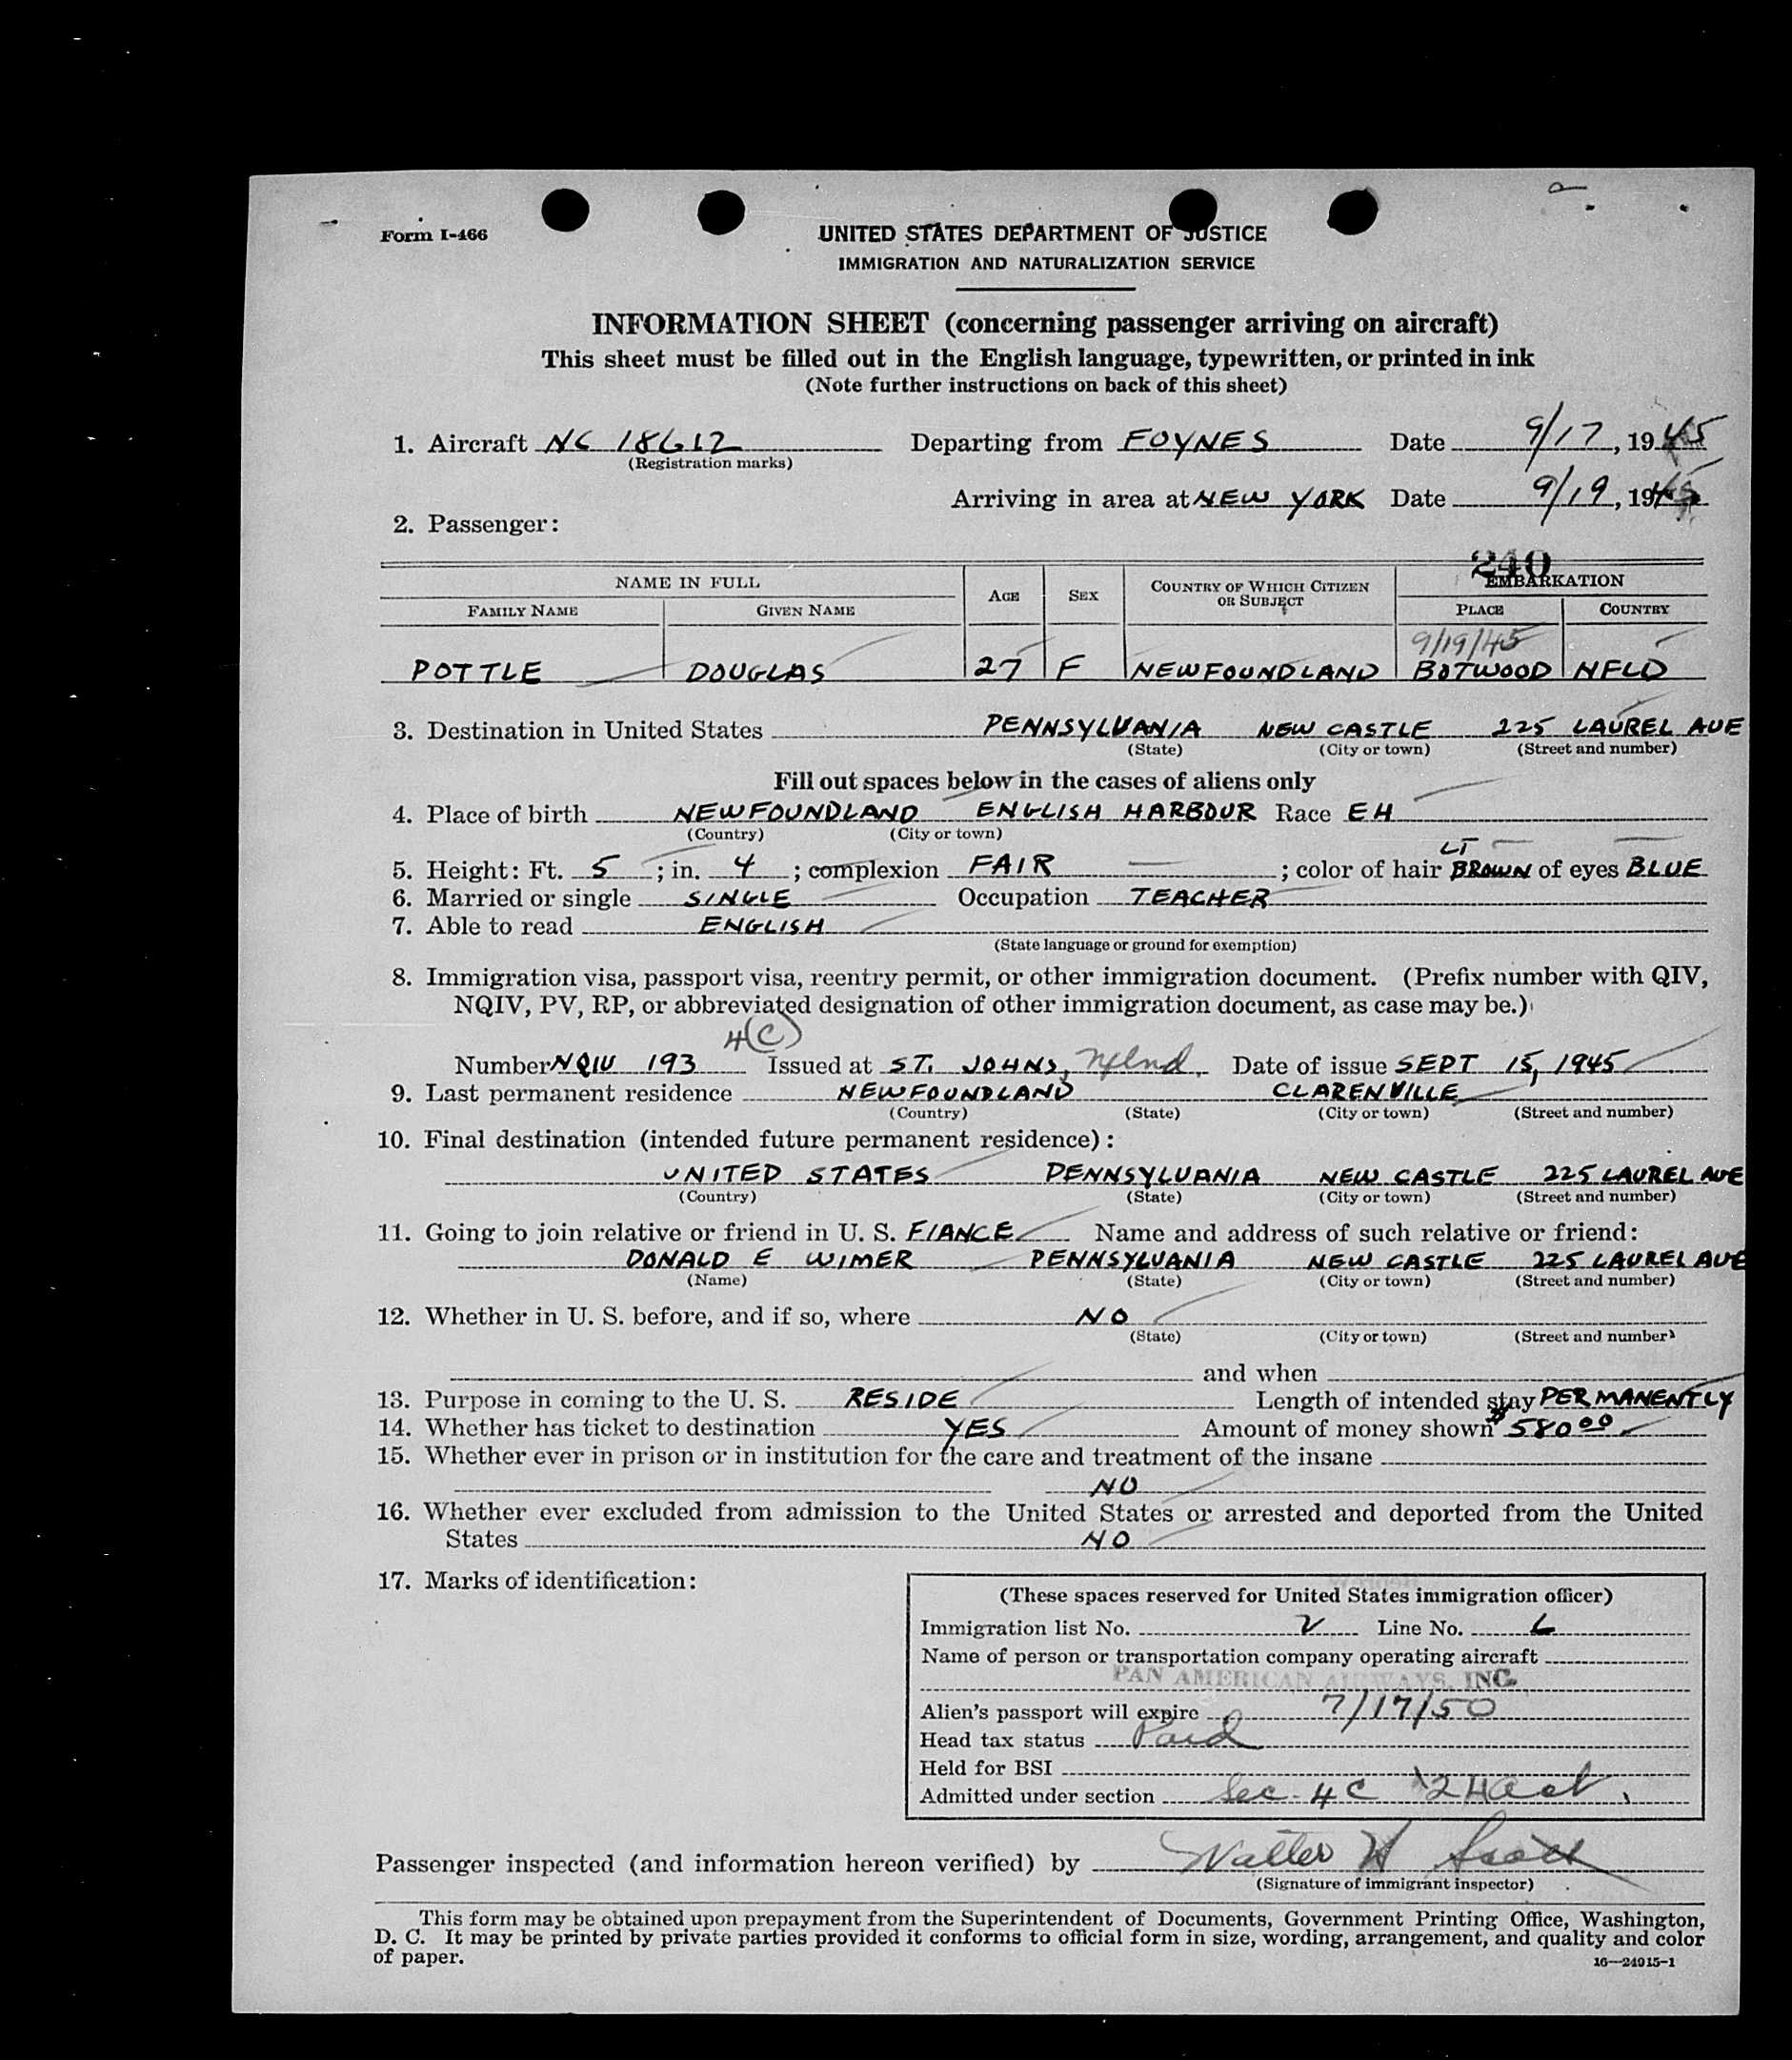 Form I-466
UNITED STATES DEPARTMENT OF JUSTICE
IMMIGRATION AND NATURALIZATION SERVICE
INFORMATION SHEET (concerning passenger arriving on aircraft)
This sheet must be filled out in the English language, typewritten, or printed in ink
(Note further instructions on back of this sheet)
1. Aircraft NC 18612 Departing from FOYNES Date 9/17, 1945
(Registration marks)
Arriving in area at NEW YORK Date 9/19, 1945
2. Passenger:
240
NAME IN FULL AGE SEX COUNTRY OF WHICH CITIZEN OR SUBJECT EMBARKATION
FAMILY NAME GIVEN NAME PLACE COUNTRY
9/19/45
POTTLE DOUGLAS 27 F NEWFOUNDLAND BOTWOOD NFLD
3. Destination in United States PENNSYLVANIA NEW CASTLE 225 LAUREL AVE
(State) (City or town) (Street and number)
Fill out spaces below in the cases of aliens only
4. Place of birth NEWFOUNDLAND ENGLISH HARBOUR Race EH
(Country) (City or town)
5. Height: Ft. 5; in. 4; complexion FAIR; color of hair LT BROWN of eyes BLUE
6. Married or single SINGLE Occupation TEACHER
7. Able to read ENGLISH
(State language or ground for exemption)
8. Immigration visa, passport visa, reentry permit, or other immigration document. (Prefix number with QIV,
NQIV, PV, RP, or abbreviated designation of other immigration document, as case may be.)
4(C)
Number NQIV 193 Issued at ST. JOHNS, Nflnd. Date of issue SEPT 15, 1945
9. Last permanent residence NEWFOUNDLAND CLARENVILLE
(Country) (State) (City or town) (Street and number)
10. Final destination (intended future permanent residence):
UNITED STATES PENNSYLVANIA NEW CASTLE 225 LAUREL AVE
(Country) (State) (City or town) (Street and number)
11. Going to join relative or friend in U. S. FIANCE Name and address of such relative or friend:
DONALD E WIMER PENNSYLVANIA NEW CASTLE 225 LAUREL AVE
(Name) (State) (City or town) (Street and number)
12. Whether in U. S. before, and if so, where NO
(State) (City or town) (Street and number)
and when
13. Purpose in coming to the U. S. RESIDE Length of intended stay PERMANENTLY
14. Whether has ticket to destination YES Amount of money shown $580 00
15. Whether ever in prison or in institution for the care and treatment of the insane
NO
16. Whether ever excluded from admission to the United States or arrested and deported from the United
States NO
17. Marks of identification:
(These spaces reserved for United States immigration officer)
Immigration list No. 2 Line No. 6
Name of person or transportation company operating aircraft
PAN AMERICAN AIRWAYS, INC.
Alien's passport will expire 7/17/50
Head tax status Paid
Held for BSI
Admitted under section Sec. 4C '24 act.
Passenger inspected (and information hereon verified) by Walter W
(Signature of immigrant inspector)
This form may be obtained upon prepayment from the Superintendent of Documents, Government Printing Office, Washington,
D. C. It may be printed by private parties provided it conforms to official form in size, wording, arrangement, and quality and color
of paper.
16—24915-1